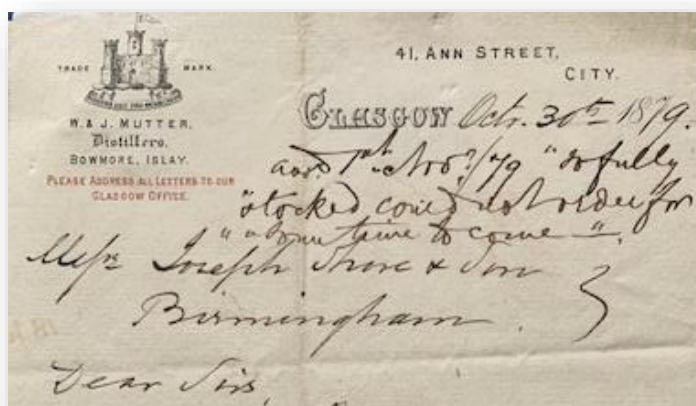 TRADE MARK.
W. & J. MUTTER,
Distillers,
BOWMORE, ISLAY.
PLEASE ADDRESS ALL LETTERS TO OUR
GLASGOW OFFICE.
41, ANN STREET,
CITY.
GLASGOW Octr. 30th 1879.
ansd 1st Novr/79 "so fully
stocked could not order for
some time to come".
Messrs Joseph Shore & Son
Birmingham.
Dear Sirs,